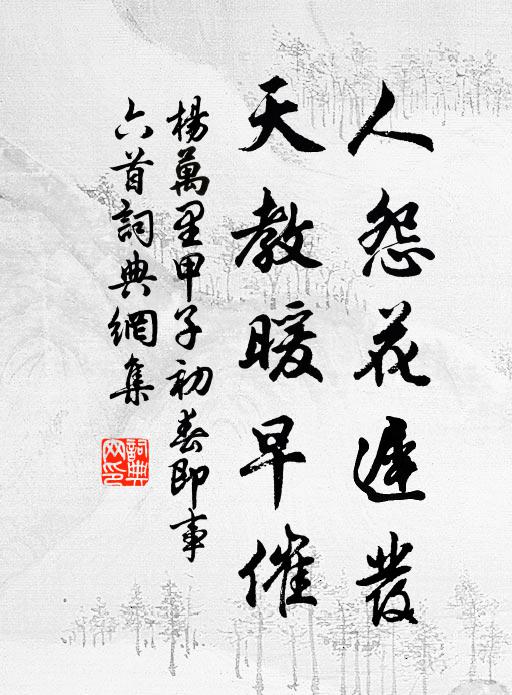 人怨花遲發
天教暖早催
楊萬里甲子初春即事
六首詞典網集
詞典
网印